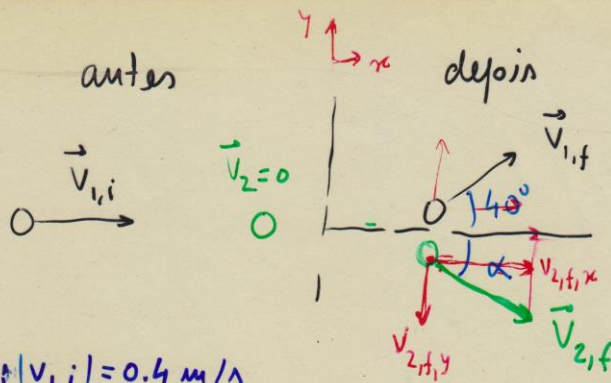 y
x
antes
depois
V₁,ᵢ
V₂=0
V₁,f
40°
α
V₂,f,x
V₂,f,y
V₂,f
|V₁,ᵢ|=0.4 m/s